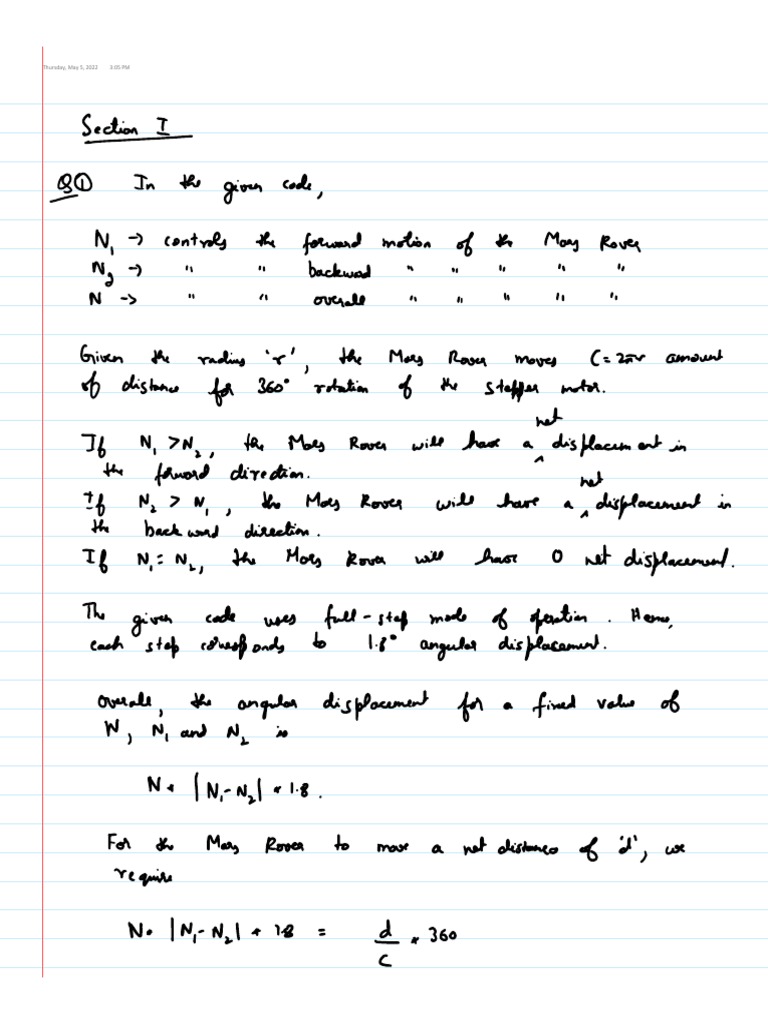 Thursday, May 5, 2022 3:05 PM
Section I
Q① In the given code,
N₁ → controls the forward motion of the Mars Rover
N₂ → " " backward " " " " "
N → " " overall " " " " "
Given the radius 'r', the Mars Rover moves C = 2πr amount
of distance for 360° rotation of the stepper motor.
If N₁ > N₂, the Mars Rover will have a net displacement in
the forward direction.
If N₂ > N₁, the Mars Rover will have a net displacement in
the backward direction.
If N₁ = N₂, the Mars Rover will have 0 net displacement.
The given code uses full-step mode of operation. Hence,
each step corresponds to 1.8° angular displacement.
Overall, the angular displacement for a fixed value of
N, N₁ and N₂ is
N * |N₁-N₂| * 1.8.
For the Mars Rover to move a net distance of 'd', we
require
N * |N₁-N₂| * 1.8 = d/C * 360